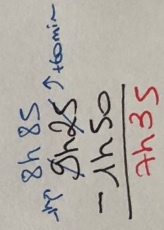 8h 85
-1h 9h25 ↗ +60min
- 1h50
7h35